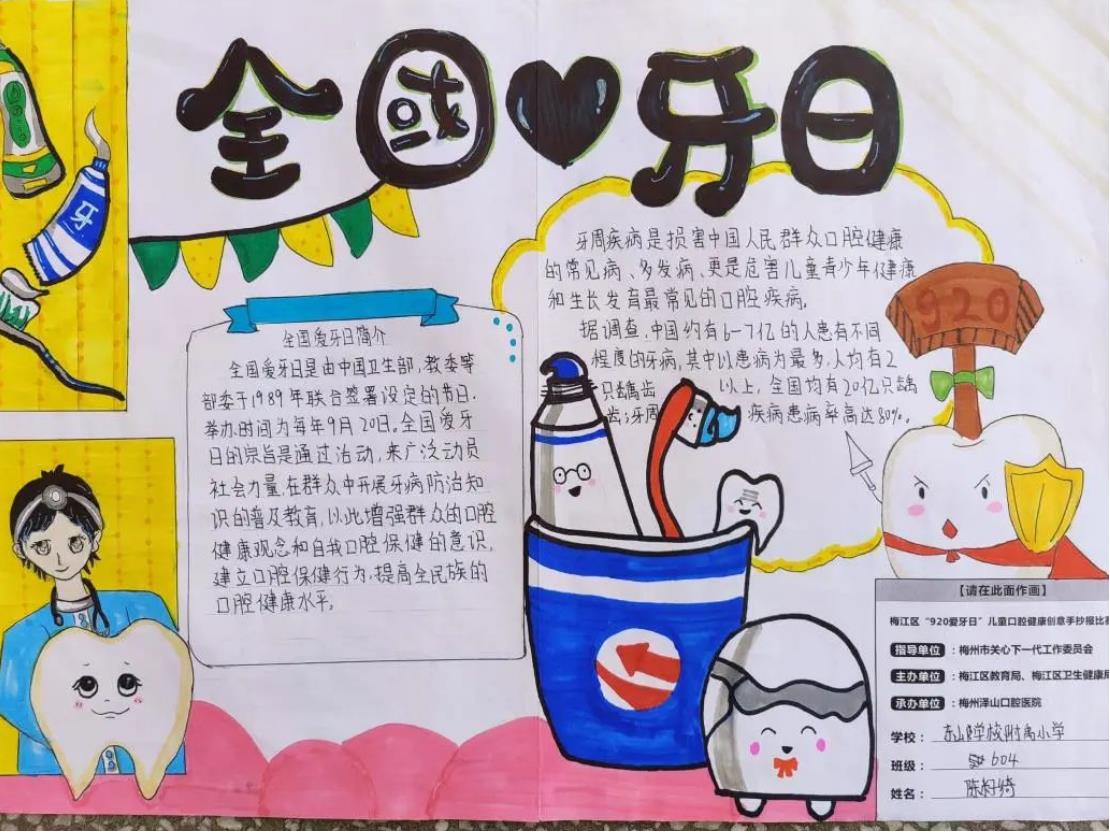 全国♥牙日
牙
牙周疾病是损害中国人民群众口腔健康
的常见病、多发病、更是危害儿童青少年健康
和生长发育最常见的口腔疾病。
据调查,中国约有6-7亿的人患有不同
程度的牙病,其中以患病为最多,人均有2
只龋齿 以上,全国均有20亿只龋
齿;牙周 疾病患病率高达80%。
920
全国爱牙日简介
全国爱牙日是由中国卫生部,教委等
部委于1989年联合签署设定的节日.
举办时间为每年9月20日。全国爱牙
日的宗旨是通过活动,来广泛动员
社会力量,在群众中开展牙病防治知
识的普及教育,以此增强群众的口腔
健康观念和自我口腔保健的意识,
建立口腔保健行为,提高全民族的
口腔健康水平。
【请在此面作画】
梅江区“920爱牙日”儿童口腔健康创意手抄报比赛
指导单位:梅州市关心下一代工作委员会
主办单位:梅江区教育局、梅江区卫生健康局
承办单位:梅州泽山口腔医院
学校:东山学校附属小学
班级:604
姓名:陈